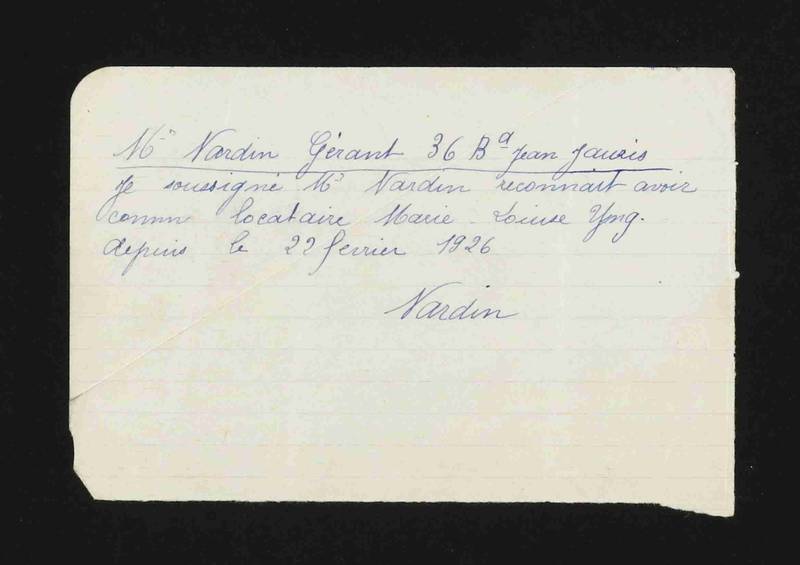 Mr Nardin Gérant 36 Bd Jean Jaurès
Je soussigné Mr Nardin reconnait avoir
comme locataire Marie-Louise Yng.
depuis le 22 fevrier 1926
Nardin